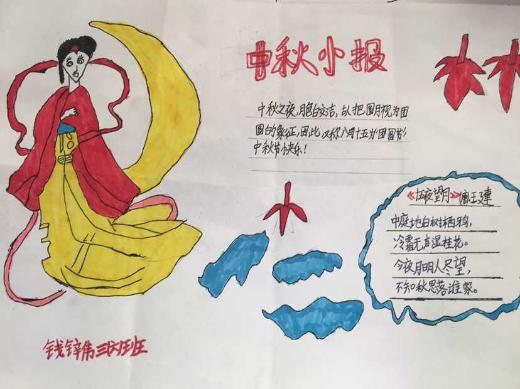 中秋小报
中秋之夜,月色皎洁,古人把圆月视为团
圆的象征,因此,又称八月十五为团圆节!
中秋节快乐!
《十五夜望月》唐王建
中庭地白树栖鸦,
冷露无声湿桂花。
今夜月明人尽望,
不知秋思落谁家。
钱锌伟 三班